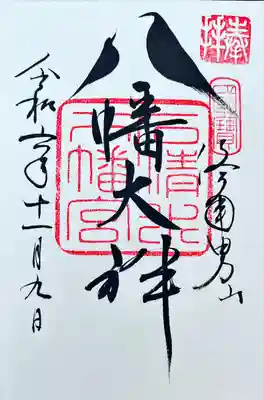 奉拝
國寶
男山
八幡大神
石清水
八幡宮
令和六年十一月九日